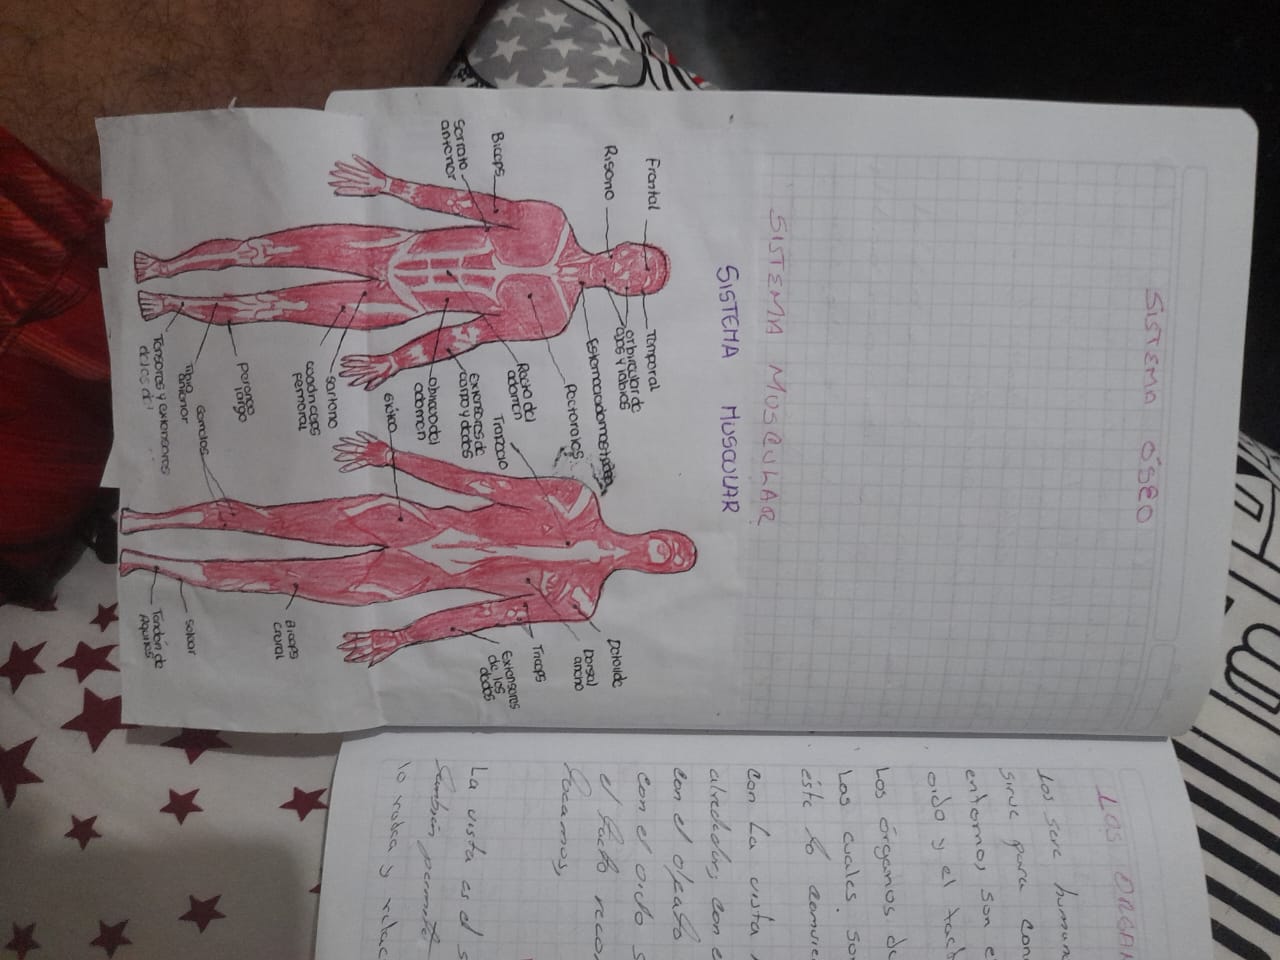 SISTEMA ÓSEO
SISTEMA MUSCULAR
SISTEMA MUSCULAR
Frontal
Risorio
Biceps
Serrato
anterior
Temporal
orbicular de
ojos y labios
Pectorales
Recto del
abdomen
Extensores de
carpo y dedos
oblicuo del
abdomen
Sartorio
cuadriceps
femoral
Peroneo
largo
Tibia
anterior
Tensores y extensores
Trapecio
Glúteo
Gemelos
Deltoide
Dorsal
ancho
Triceps
Extensores
de los
dedos
Biceps
crural
soleor
Tendón de
Aquiles
LOS ORGAN
Los sere human
sirve para con
entornos, son e
oido y el tact
Los órganos de
Los cuales son
éste lo
con La vista
alrededor, con e
con el olfato
con el oido s
el tacto recon
Tocamos,
La vista es el s
También permite
lo rodea y